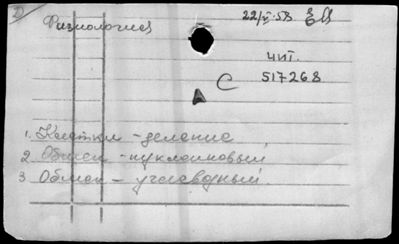 Физиология
22/V-58
ЧИТ.
С 517268
А
1. Клетки - деление
2 Обмен - нуклеиновый
3 Обмен - углеводный.